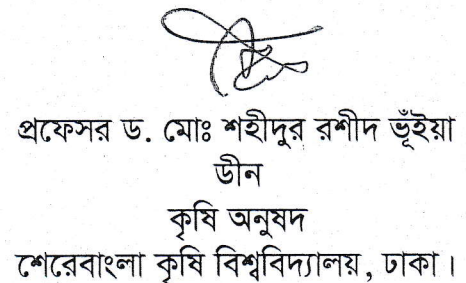 প্রফেসর ড. মোঃ শহীদুর রশীদ ভূঁইয়া
ডীন
কৃষি অনুষদ
শেরেবাংলা কৃষি বিশ্ববিদ্যালয়, ঢাকা।